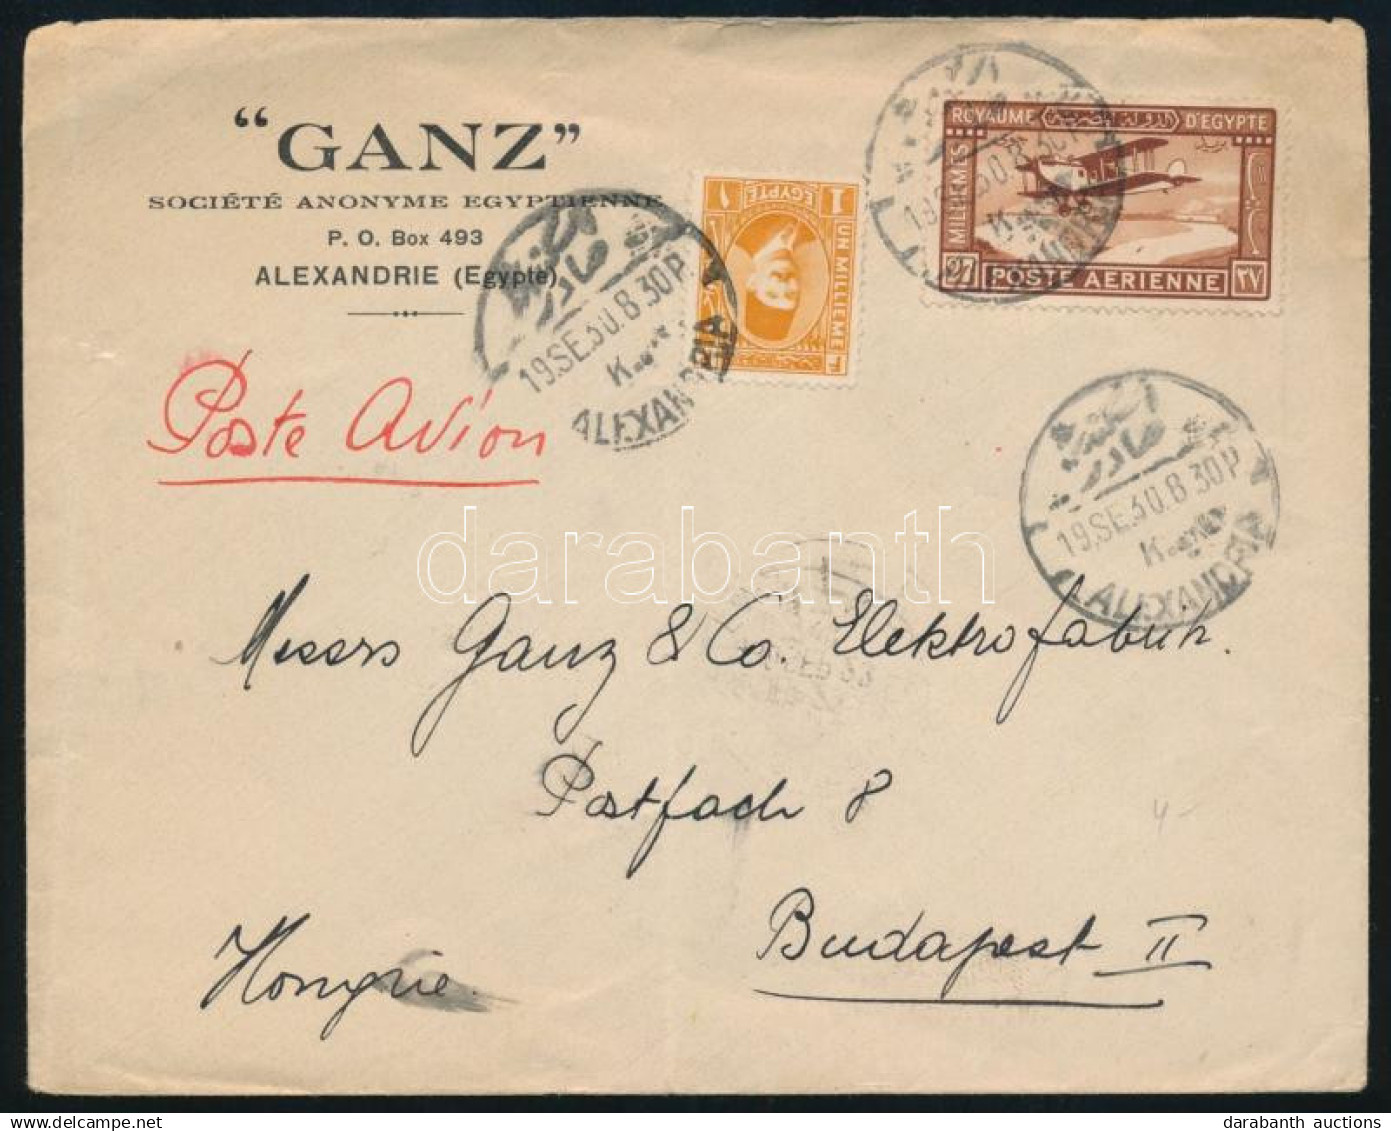 “GANZ”
SOCIÉTÉ ANONYME EGYPTIENNE
P. O. Box 493
ALEXANDRIE (Egypte)
Poste Avion
19.SE.30.8 30P
K
ALEXANDRIA
1
EGYPTE
١
UN MILLIEME
ROYAUME الدولة المصرية D'EGYPTE
MILLIEMES
27 POSTE AERIENNE ٢٧
19.SE.30.8 30P
K
ALEXANDRIA
darabanth
Messrs Ganz & Co. Elektrofabrik.
Postfach 8
Budapest II
Hongrie
darabanth auctions